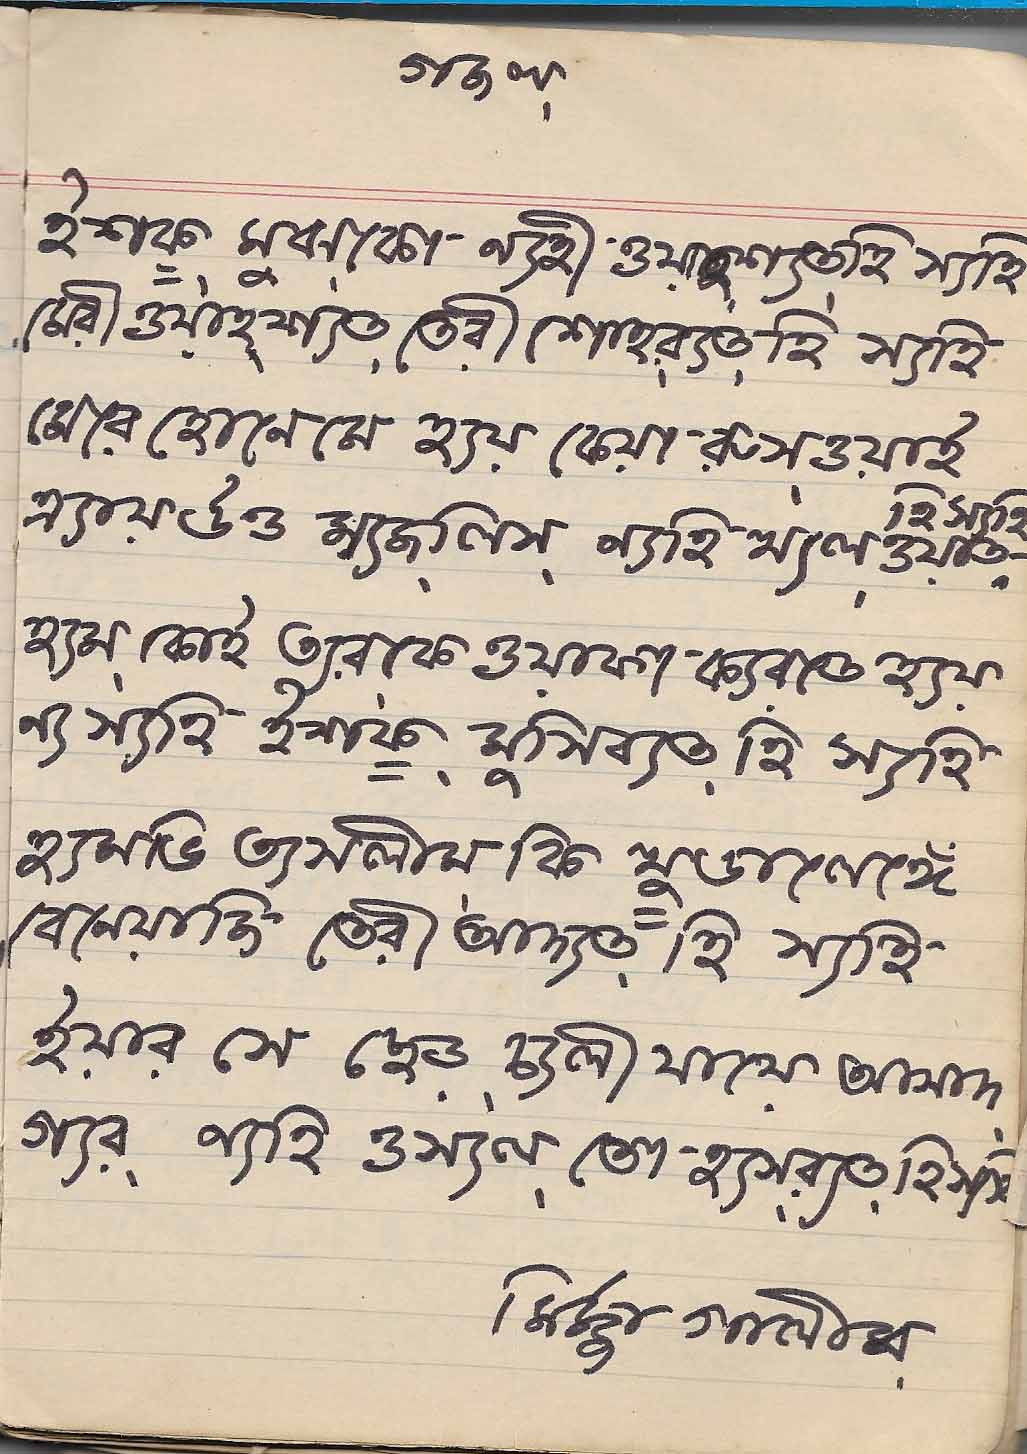 গজল্
ইশক্ মুঝকো ন্যহী ওয়াহ্‌শ্যত্ হি স্যহি
মেরী ওয়াহ্‌শ্যত্ তেরী শোহর্‌ব্যত্ হি স্যহি
মেরে হোনে মে হ্যয় কেয়া রুস্‌ওয়াই
এ্যায় র্উও ম্যজ্‌লিস্ ন্যহি খ্যল্‌ওয়াত্
হি স্যহি
হ্যম্ কোই ত্যরকে ওয়াফা ক্যরতে হ্যয়
ন্য স্যহি ইশক্ মুসিব্যত্ হি স্যহি
হ্যমভি ত্যসলীম্ কি খু ডালেঙ্গেঁ
বেনেয়াজি তেরী আদ্যত্ হি স্যহি
ইয়ার সে ছেড়্ চ্যলী যায়ে আসাদ্
গ্যর্ ন্যহি ওস্যল্ তো হ্যস্‌র্‌ব্যত্ হি স্যহি
মির্জ্জা গালীব্